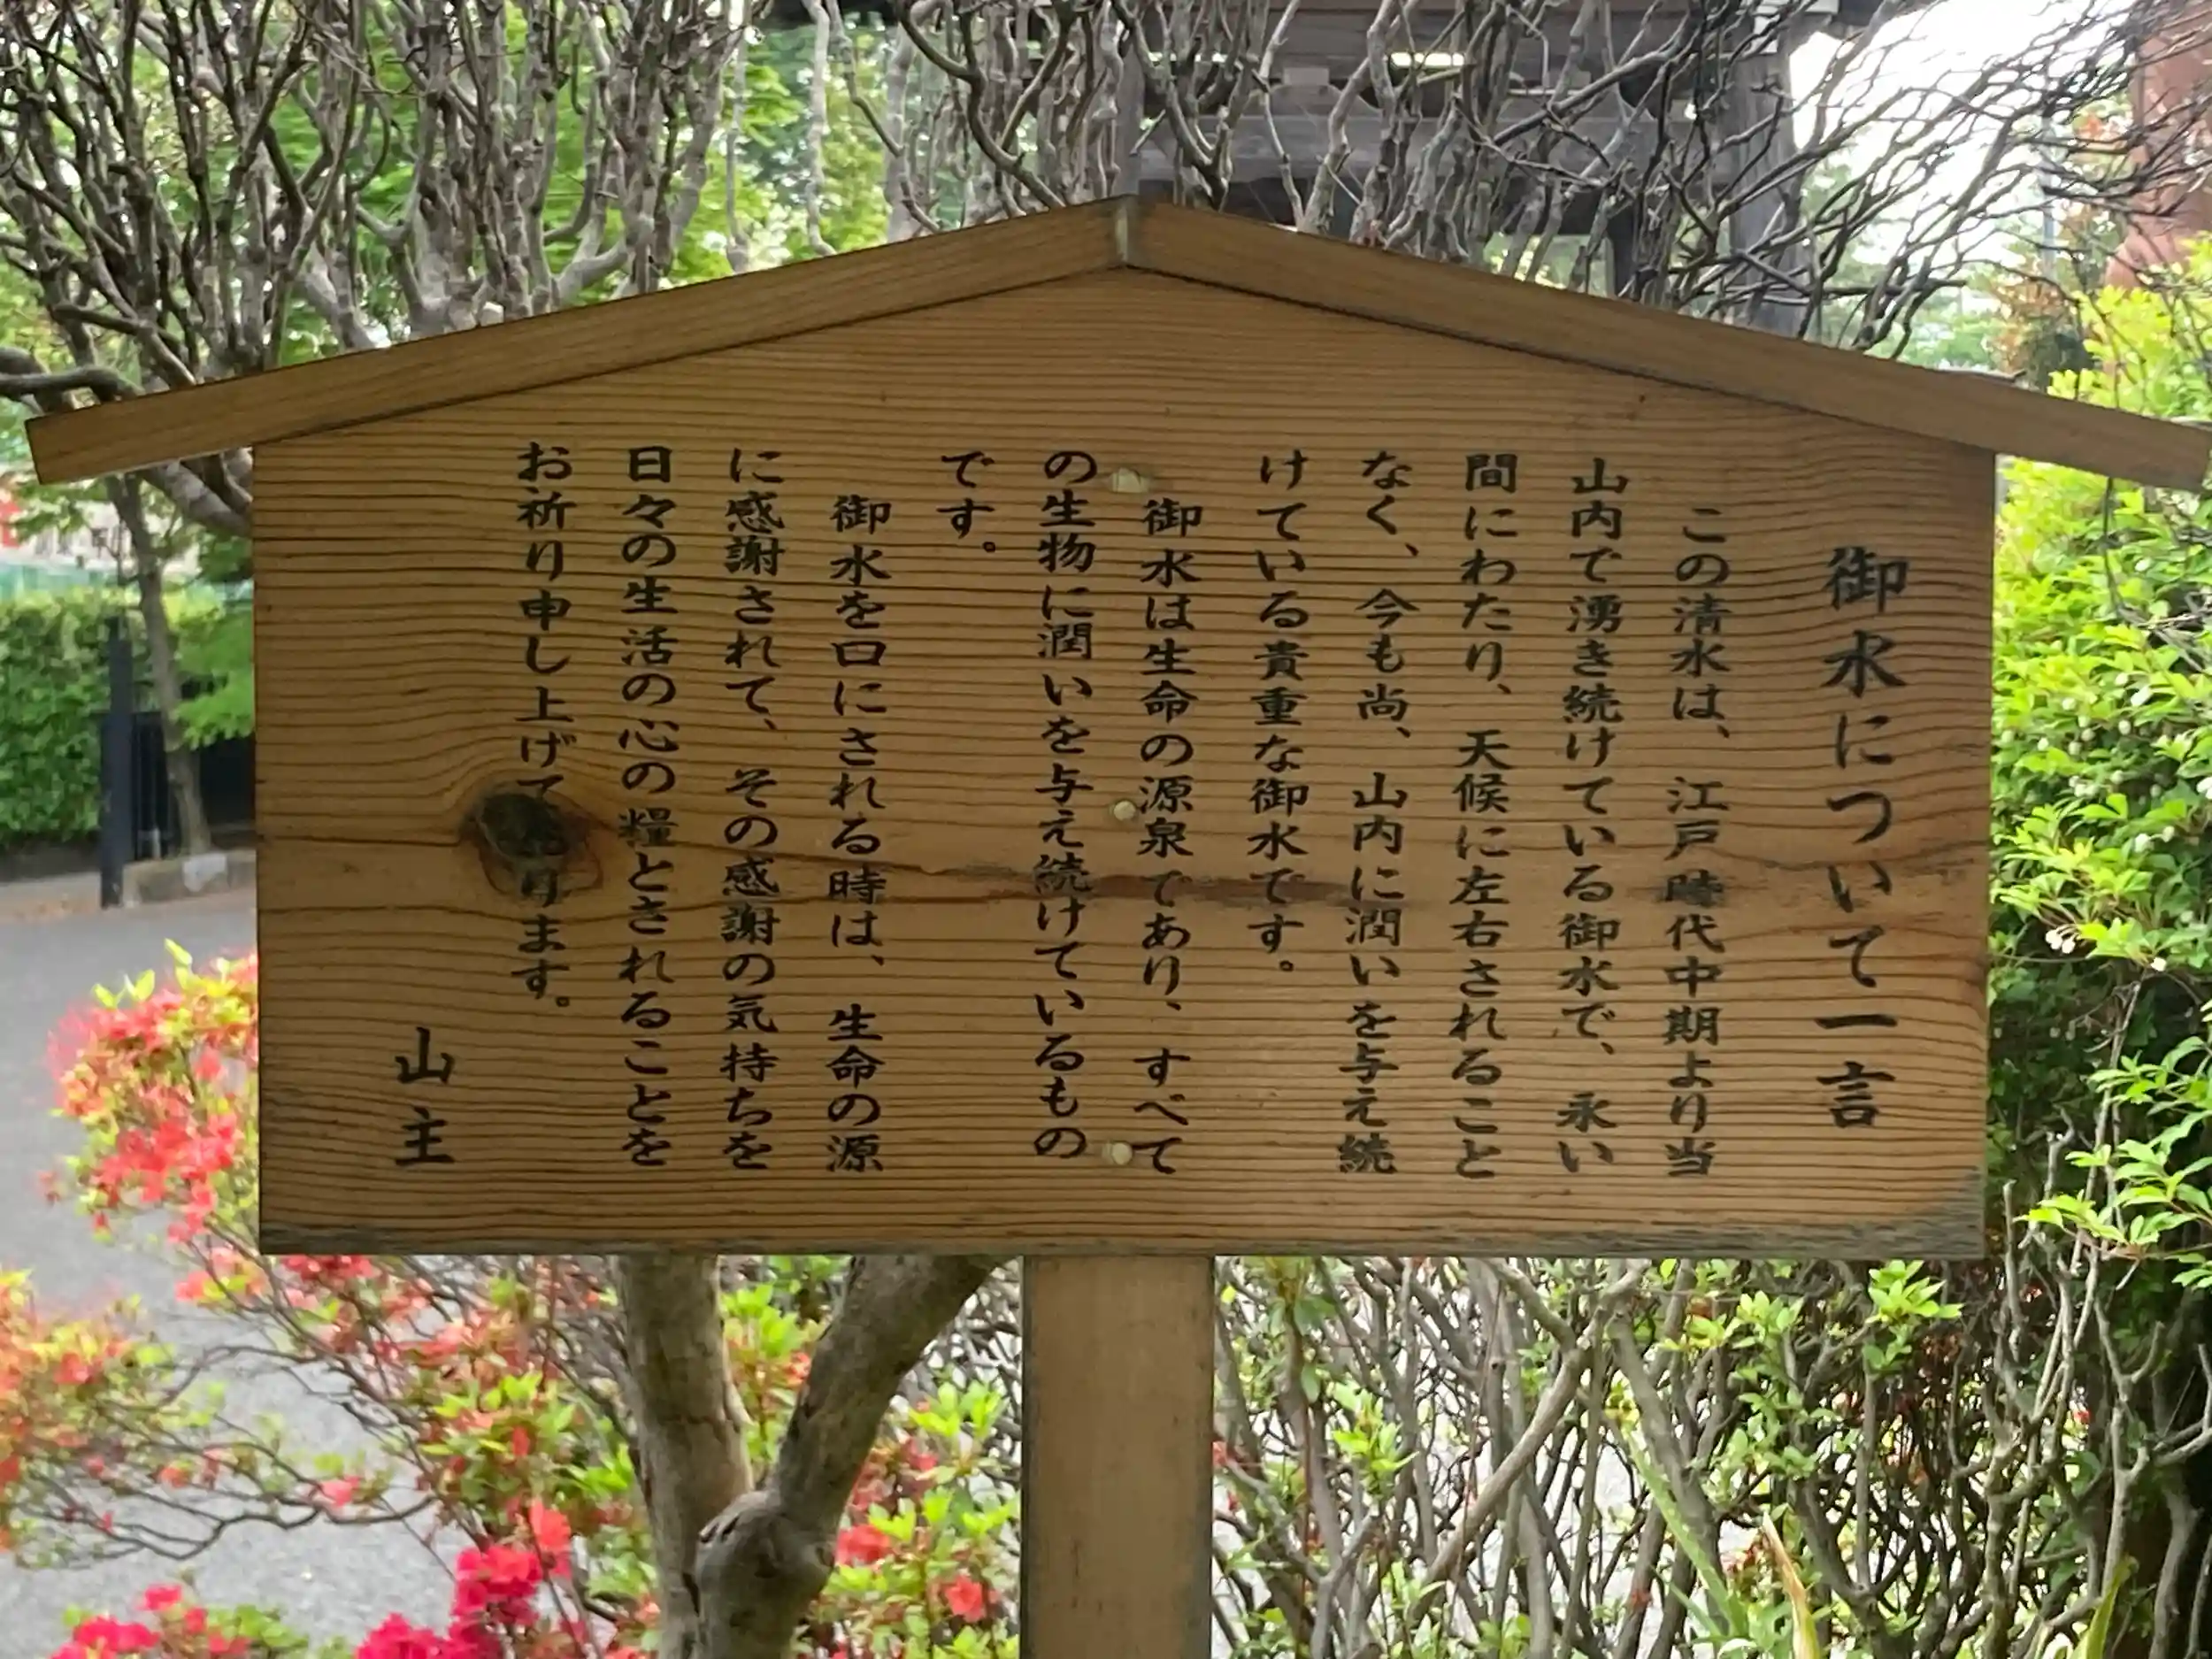 御水について一言
この清水は、江戸時代中期より当
山内で湧き続けている御水で、永い
間にわたり、天候に左右されること
なく、今も尚、山内に潤いを与え続
けている貴重な御水です。
御水は生命の源泉であり、すべて
の生物に潤いを与え続けているもの
です。
御水を口にされる時は、生命の源
に感謝されて、その感謝の気持ちを
日々の生活の心の糧とされることを
お祈り申し上げて居ります。
山主